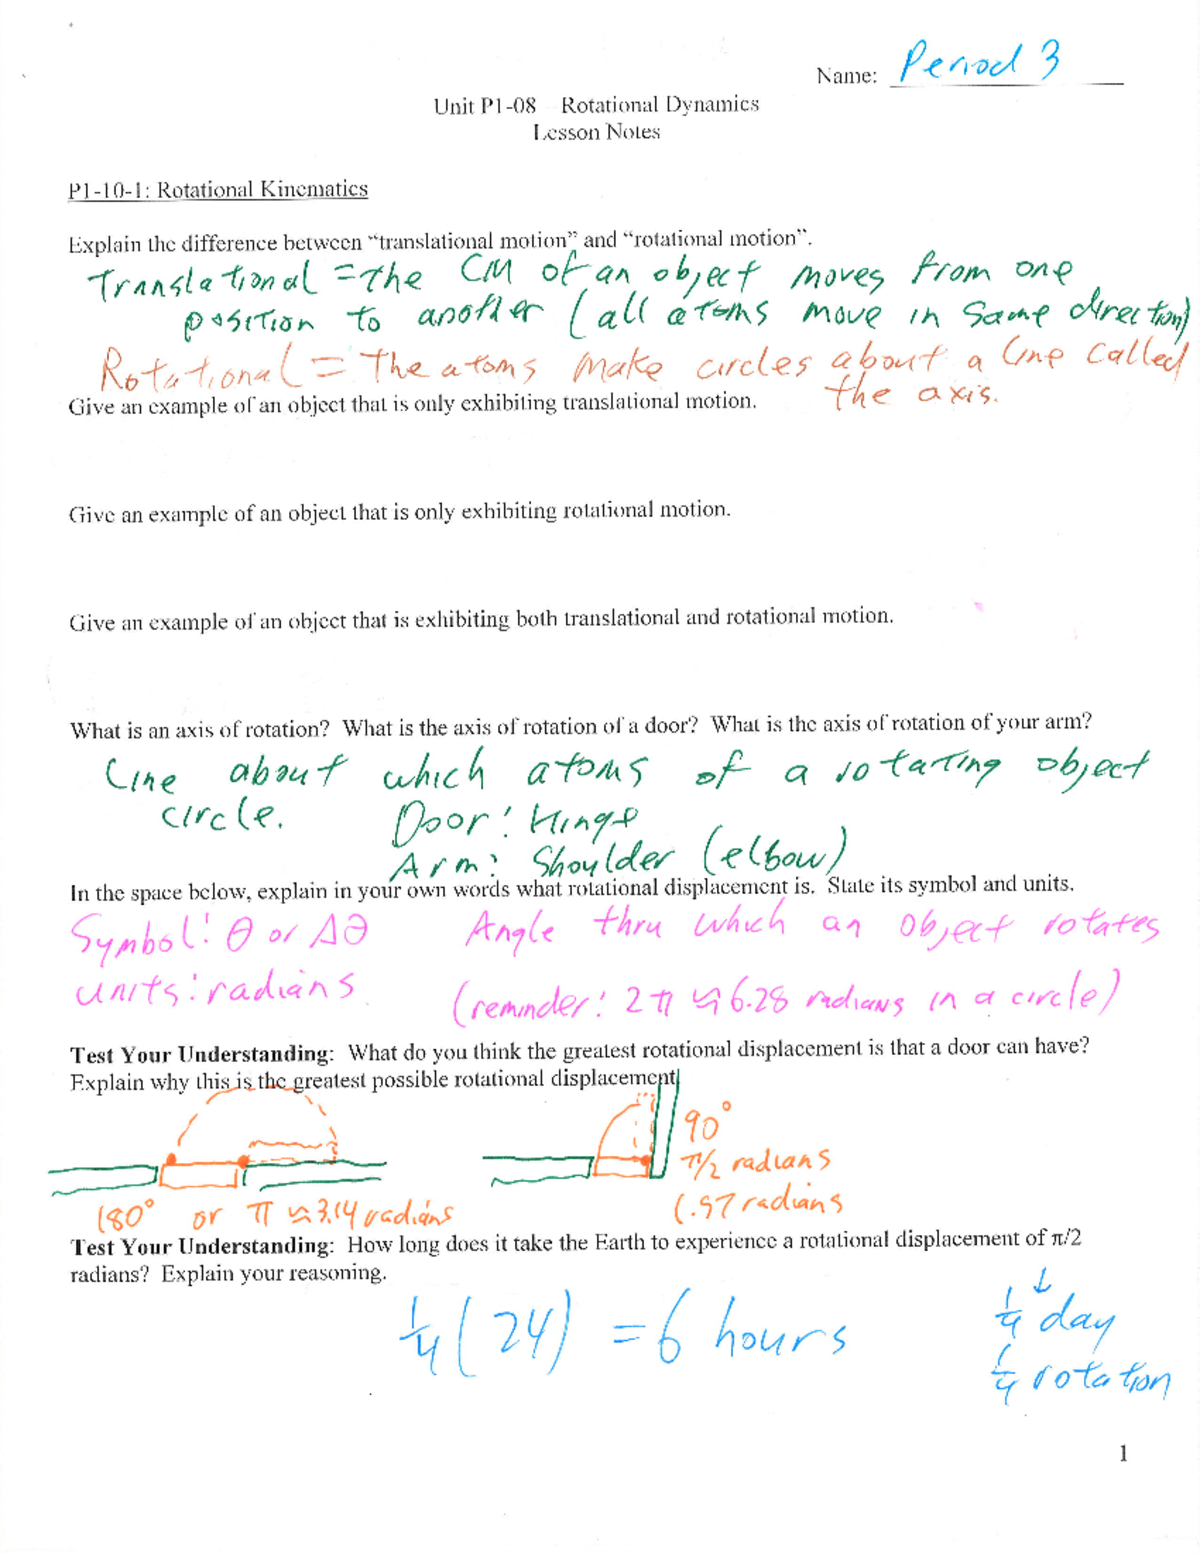 Name: Period 3
Unit P1-08 Rotational Dynamics
Lesson Notes
P1-10-1: Rotational Kinematics
Explain the difference between “translational motion” and “rotational motion”.
Translational = The CM of an object moves from one
position to another (all atoms move in same direction)
Rotational = The atoms make circles about a line called
the axis.
Give an example of an object that is only exhibiting translational motion.
Give an example of an object that is only exhibiting rotational motion.
Give an example of an object that is exhibiting both translational and rotational motion.
What is an axis of rotation? What is the axis of rotation of a door? What is the axis of rotation of your arm?
Line about which atoms of a rotating object
circle. Door: Hinge
Arm: Shoulder (elbow)
In the space below, explain in your own words what rotational displacement is. State its symbol and units.
Symbol: θ or Δθ Angle thru which an object rotates
units: radians (reminder: 2π ≈ 6.28 radians in a circle)
Test Your Understanding: What do you think the greatest rotational displacement is that a door can have?
Explain why this is the greatest possible rotational displacement
90°
π/2 radians
180° or π ≈ 3.14 radians 1.57 radians
Test Your Understanding: How long does it take the Earth to experience a rotational displacement of π/2
radians? Explain your reasoning.
↓
1/4 (24) = 6 hours 1/4 day
1/4 rotation
1